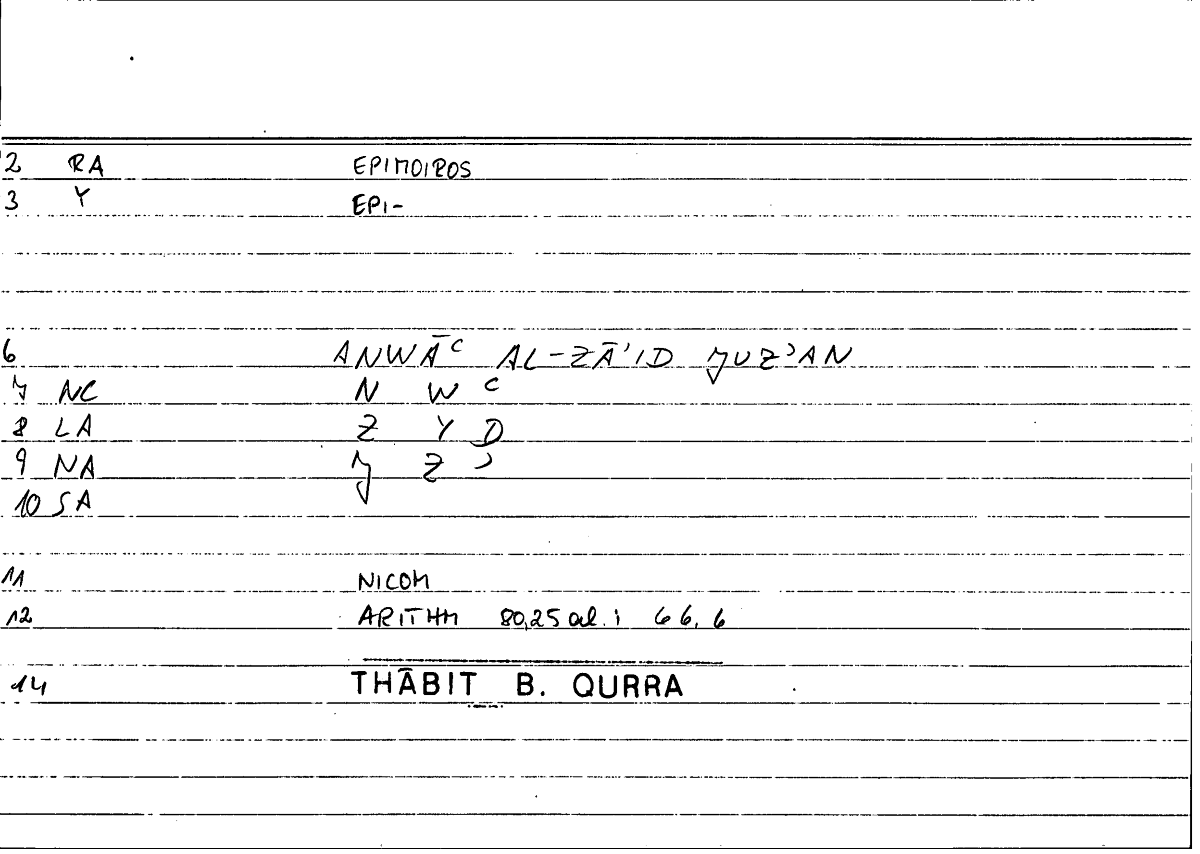 2 RA EPIMOIROS
3 Y EPI-
6 ANWĀʿ AL-ZĀʾID JUZʾAN
7 NC N W ʿ
8 LA Z Y D
9 NA J Z ʾ
10 SA J
11 NICOM
12 ARITHM 80,25 al. i 66,6
14 THĀBIT B. QURRA